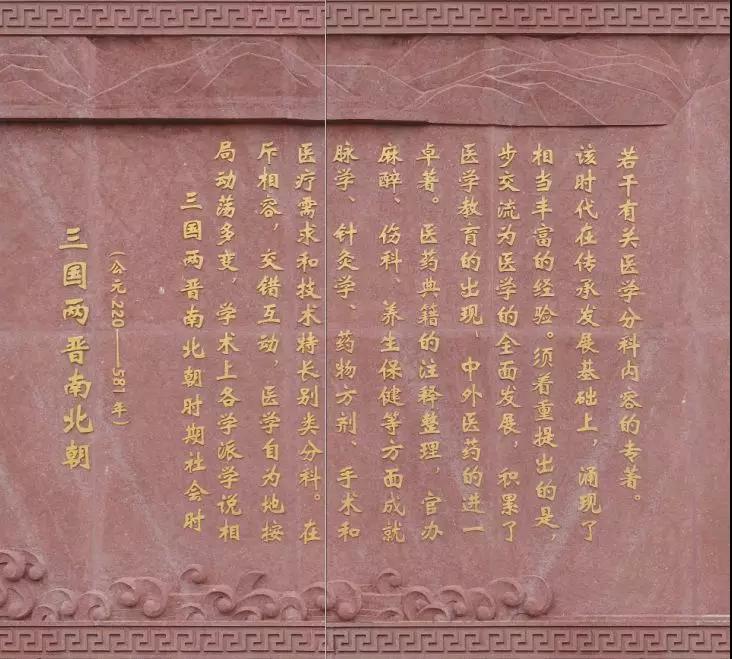 三国两晋南北朝
(公元220——581年)
三国两晋南北朝时期社会时
局动荡多变，学术上各学派学说相
斥相容，交错互动，医学自为地按
医疗需求和技术特长别类分科。在
脉学、针灸学、药物方剂、手术和
麻醉、伤科、养生保健等方面成就
卓著。医药典籍的注释整理，官办
医学教育的出现，中外医药的进一
步交流为医学的全面发展，积累了
相当丰富的经验。须着重提出的是，
该时代在传承发展基础上，涌现了
若干有关医学分科内容的专著。